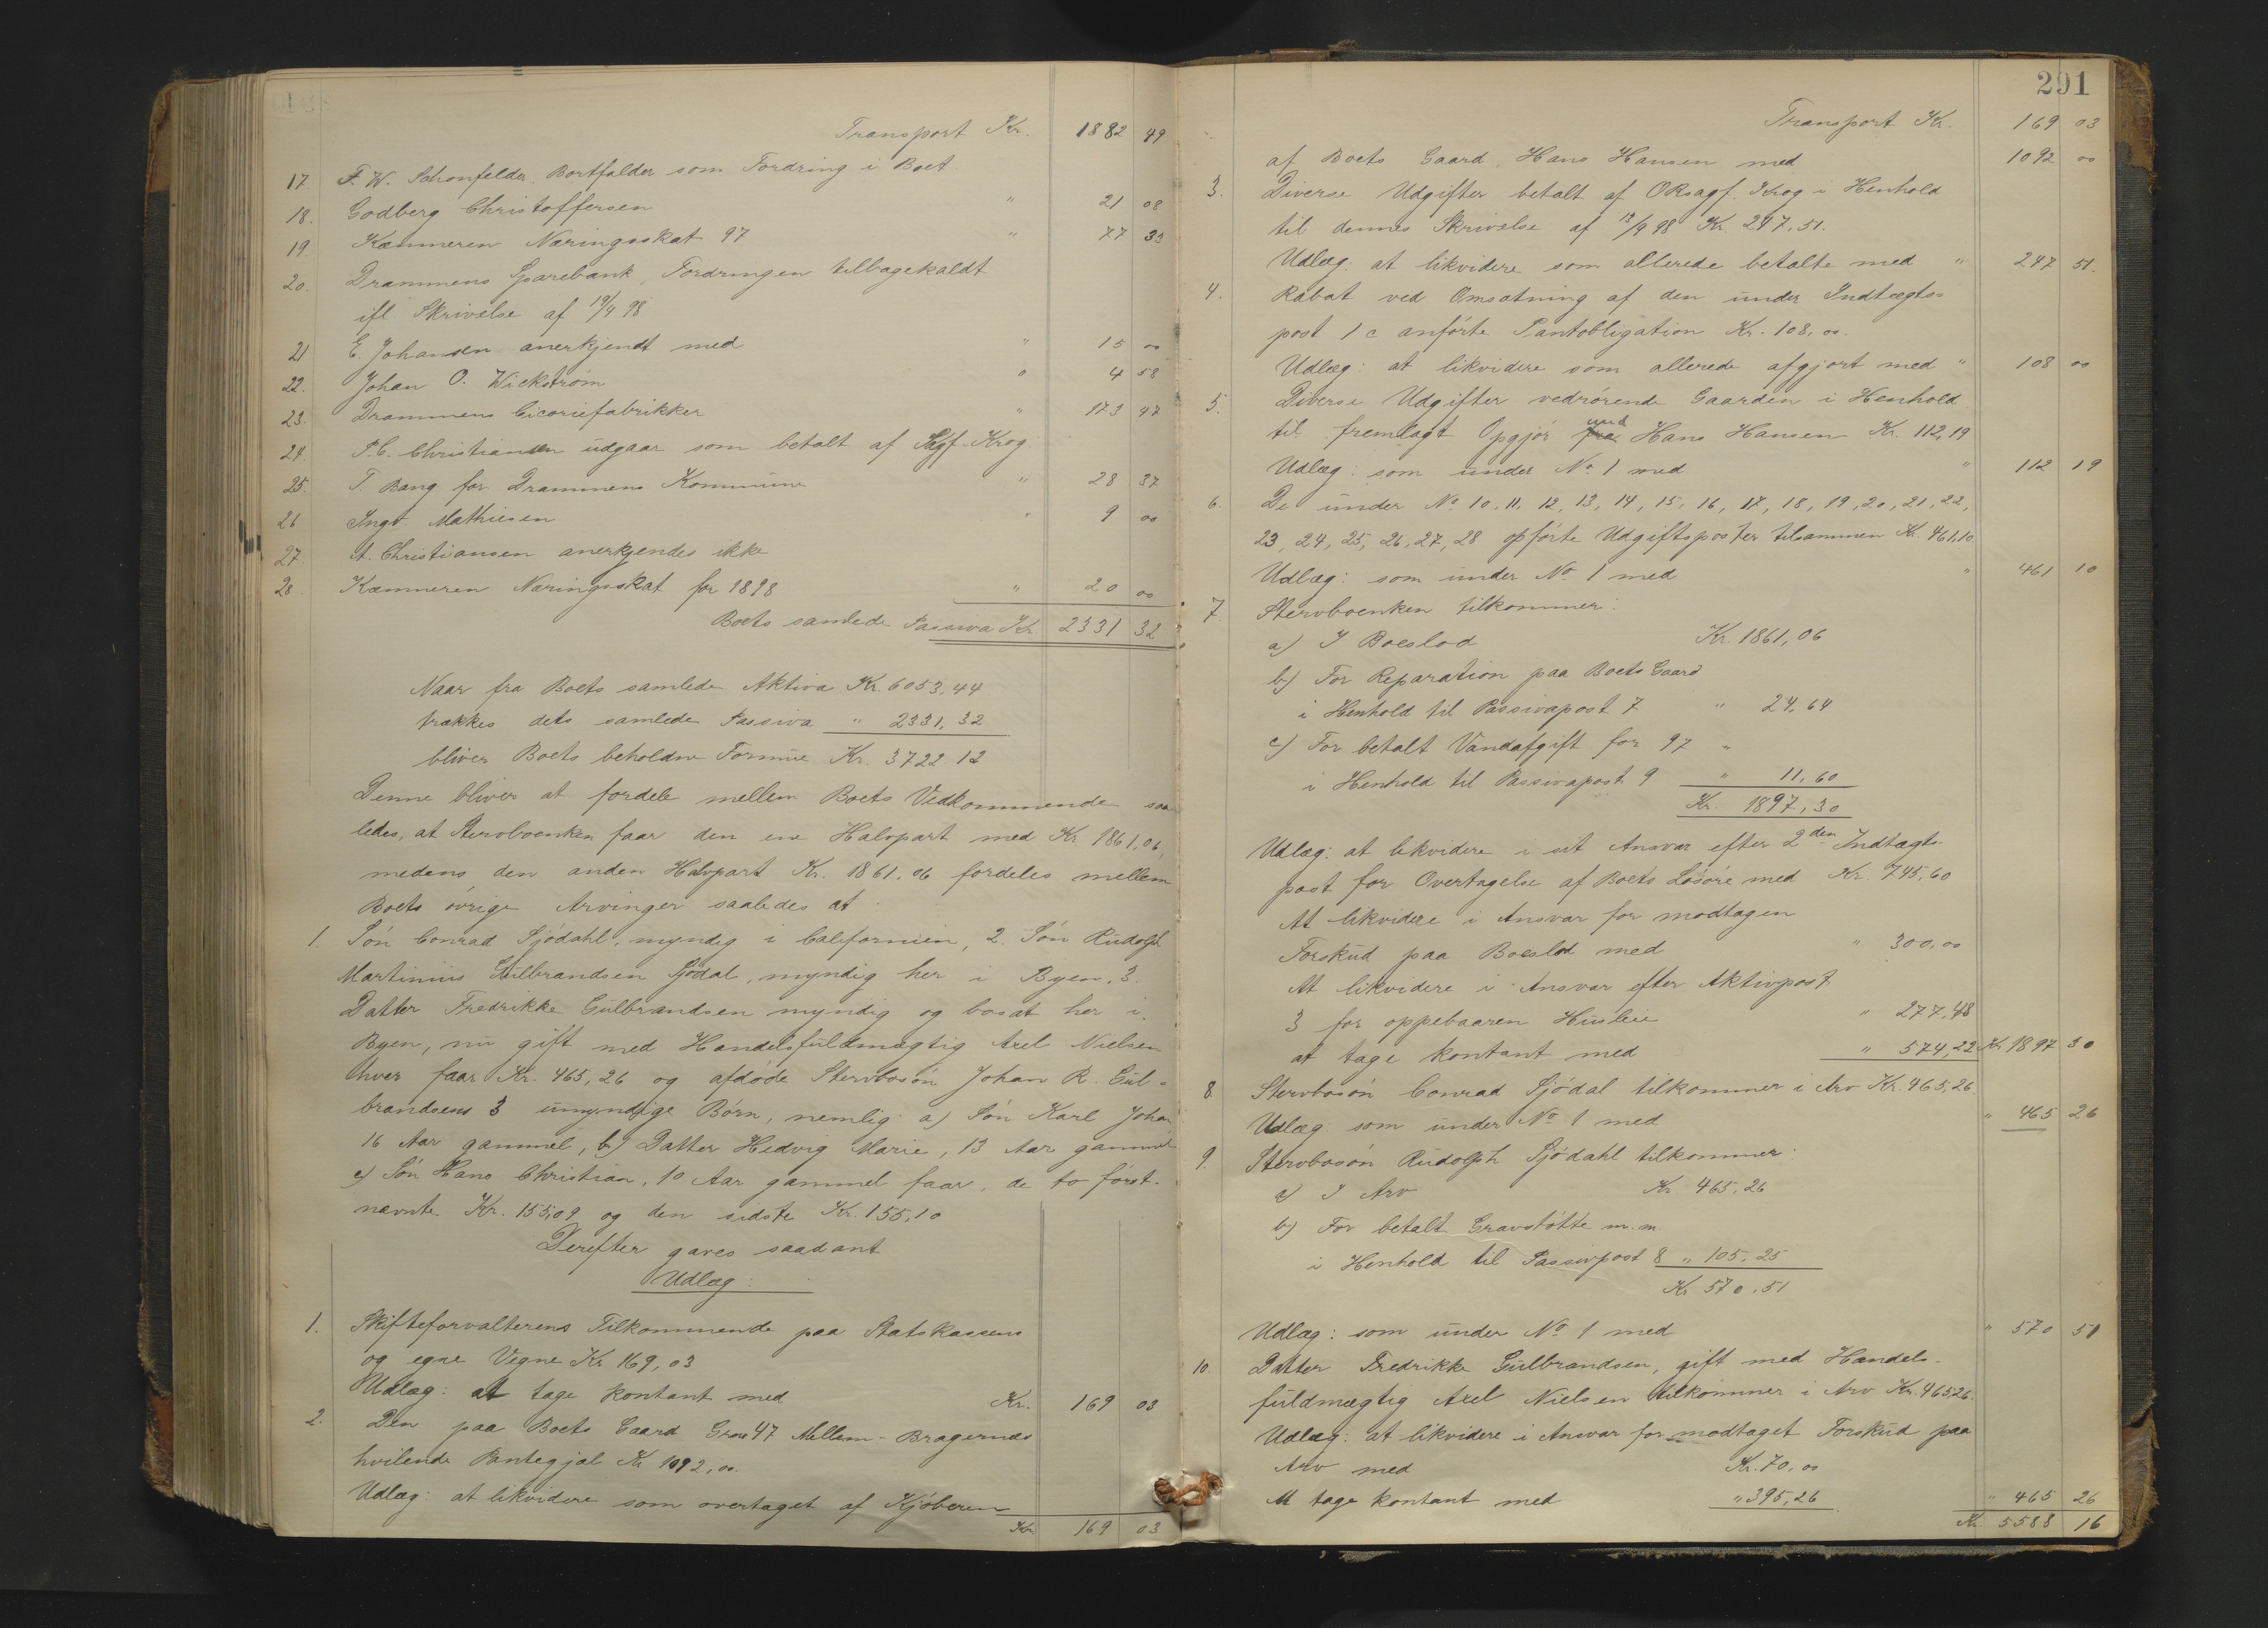 Transport Kr. 1882 49
17. F. W. Schonfelder. Bortfalder som Fordring i Boet
18. Godberg Christoffersen " 21 08
19. Kæmneren Næringsskat 97 " 77 33
20. Drammens Sparebank, Fordringen tilbagekaldt
ifl. Skrivelse af 19/4 98
21 E. Johansen anerkjendt med " 15 00
22. Johan O. Wickstrøm " 4 58
23. Drammens Cicoriefabrikker " 173 47
24. P. C. Christiansen udgaar som betalt af Sagf. Krog.
25. T. Bang for Drammens Kommune " 28 37
26 Ingv. Mathiesen " 9 00
27. A. Christiansen anerkjendes ikke
28. Kæmneren Næringsskat for 1898 " 20 00
Boets samlede Passiva Kr. 2331 32
Naar fra Boets samlede Aktiva Kr. 6053,44
trækkes dets samlede Passiva " 2331,32
bliver Boets beholdne Formue Kr. 3722.12
Denne bliver at fordele mellem Boets Vedkommende saa
ledes, at Stervboenken faar den ene Halvpart med Kr 1861,06,
medens den anden Halvpart Kr. 1861.06 fordeles mellem
Boets øvrige Arvinger saaledes at:
1. Søn Conrad Sjödahl, myndig i Californien, 2. Søn Rudolph
Martinius Gulbrandsen Sjödal, myndig her i Byen, 3.
Datter Fredrikke Gulbrandsen myndig og bosat her i
Byen, nu gift med Handelsfuldmægtig Axel Nielsen
hver faar Kr. 465,26 og afdøde Stervbosøn Johan R. Gul-
brandsens 3 umyndige Børn, nemlig: a) Søn Karl Johan
16 Aar gammel, b) Datter Hedvig Marie, 13 Aar gammel
c) Søn Hans Christian, 10 Aar gammel faar, de to først-
nævnte Kr. 155,09 og den sidste Kr. 155,10
Derefter gaves saadant
Udlæg:
1. Skifteforvalterens Tilkommende paa Statskassens
og egne Vegne Kr 169,03
Udlæg: at tage kontant med Kr. 169 03
2. Den paa Boets Gaard Gr. 47 Mellem-Bragernes
hvilende Pantegjæl Kr 1092,00.
Udlæg: at likvidere som overtaget af Kjøberen
Kr. 169 03
291
Transport Kr. 169 03
af Boets Gaard, Hans Hansen med 1092 00
3. Diverse Udgifter betalt af ORsagf. Krog i Henhold
til dennes Skrivelse af 13/9 98 Kr. 247,51.
Udlæg: at likvidere som allerede betalte med " 247 51.
4. Rabat ved Omsætning af den under Indtægts-
post 1 c anførte Pantobligation Kr. 108,00.
Udlæg: at likvidere som allerede afgjort med " 108 00
5. Diverse Udgifter vedrørende Gaarden i Henhold
til fremlagt Opgjør fra Hans Hansen Kr. 112,19
Udlæg: som under No 1 med " 112 19
6. De under No 10, 11, 12, 13, 14, 15, 16, 17, 18, 19, 20, 21, 22,
23, 24, 25, 26, 27, 28 opførte Udgiftsposter tilsammen Kr. 461,10
Udlæg: som under No 1 med " 461 10
7. Stervboenken tilkommer:
a) I Boeslod Kr. 1861,06
b) For Reparation paa Boets Gaard
i Henhold til Passivapost 7 " 24,64
c) For betalt Vandafgift for 97
i Henhold til Passivapost 9 " 11,60
Kr. 1897,30
Udlæg: at likvidere i sit Ansvar efter 2den Indtægts-
post for Overtagelse af Boets Løsøre med Kr. 745,60
At likvidere i Ansvar for modtagen
Forskud paa Boeslod med " 300,00
At likvidere i Ansvar efter Aktivpost
3 for oppebaaren Husleie " 277,48
at tage kontant med " 574,22 Kr 1897 30
8 Stervbosøn Conrad Sjödal tilkommer i Arv Kr. 465,26
Udlæg: som under No 1 med " 465 26
9. Stervbosøn Rudolph Sjödahl tilkommer:
a) I Arv Kr 465,26
b) For betalt Gravstøtte m.m.
i Henhold til Passivpost 8 " 105,25
Kr 570,51
Udlæg: som under No 1 med " 570 51
10 Datter Fredrikke Gulbrandsen, gift med Handels-
fuldmægtig Axel Nielsen tilkommer i Arv Kr. 465,26.
Udlæg: at likvidere i Ansvar for modtaget Forskud paa
Arv med Kr. 70,00
At tage kontant med " 395,26 " 465 26
Kr. 5588 16